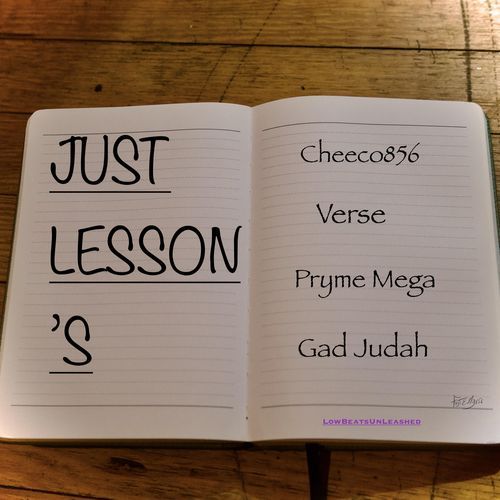 JUST
LESSON
'S
Cheeco856
Verse
Pryme Mega
Gad Judah
LowBeatsUnLeashed